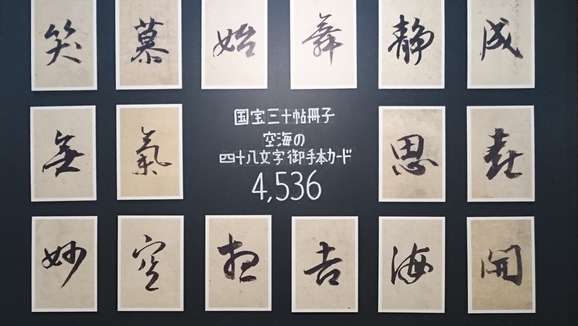 笑 慕 始 舞 静 成
国宝三十帖冊子
空海の
四十八文字御手本カード
4,536
無 氣 思 喜
妙 空 想 吉 海 開